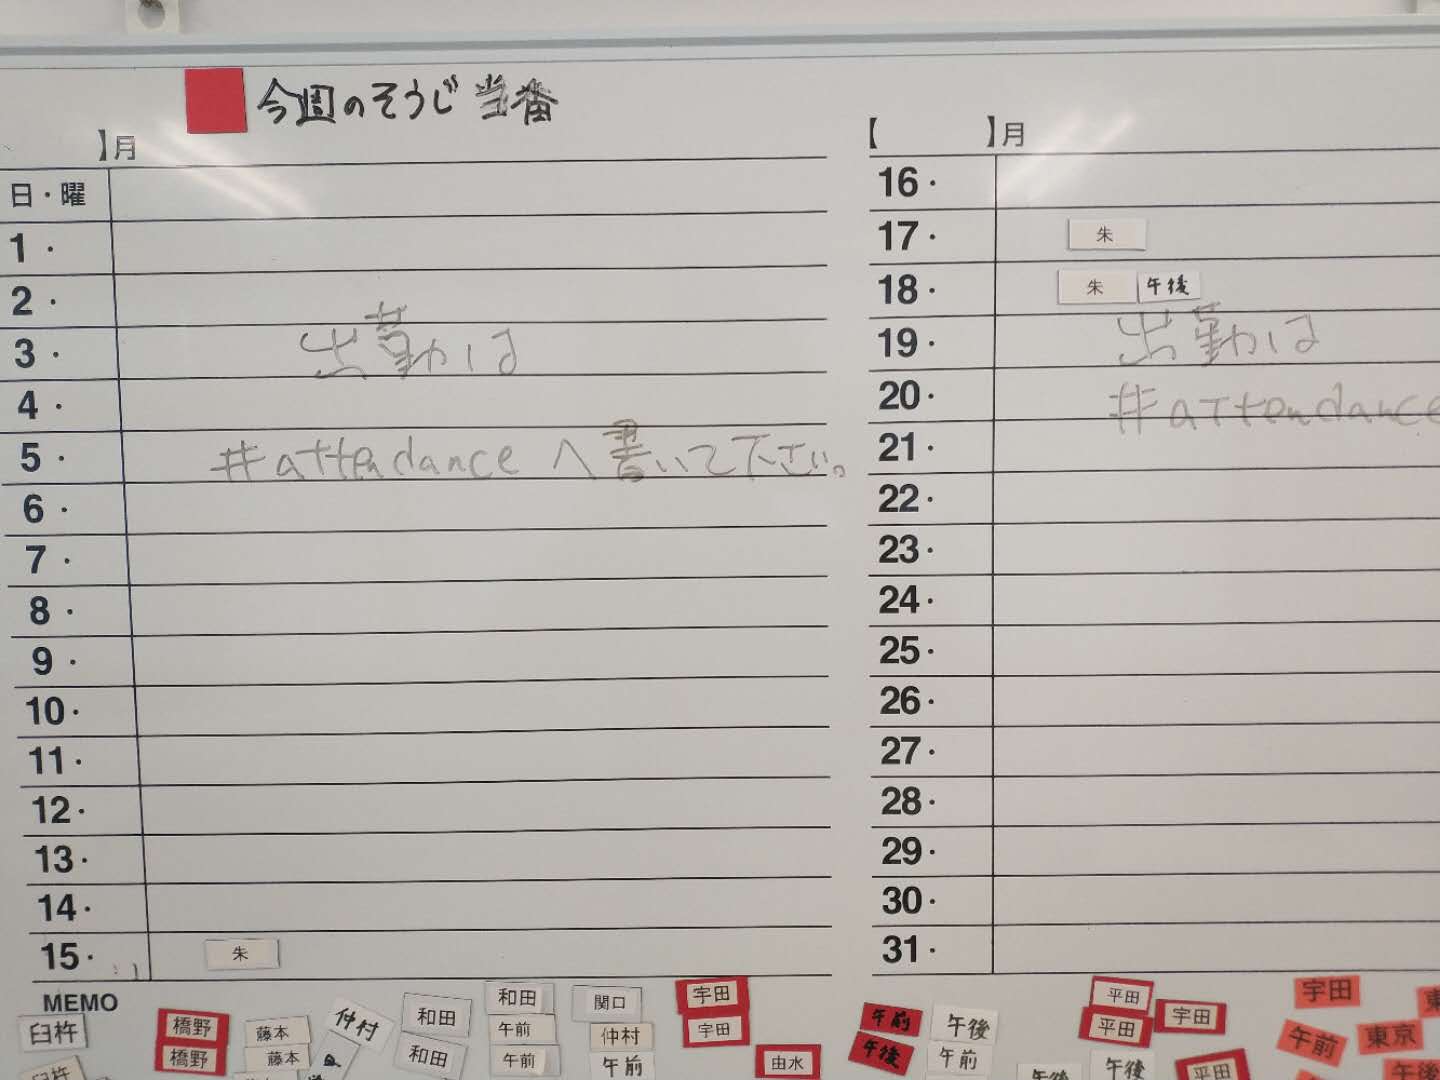 今週のそうじ当番
】月
日・曜
1・
2・
3・
出勤は
4・
5・
#attendance へ書いて下さい。
6・
7・
8・
9・
10・
11・
12・
13・
14・
15・
朱
【 】月
16・
17・
朱
18・
朱 午後
19・
出勤は
20・
#attendance
21・
22・
23・
24・
25・
26・
27・
28・
29・
30・
31・
MEMO
臼杵
臼杵
橋野
橋野
藤本
藤本
仲村
和田
和田
和田
午前
午前
関口
仲村
午前
宇田
宇田
由水
午前
午後
午後
午前
午後
平田
平田
宇田
午後
平田
宇田
午前
東京
午後